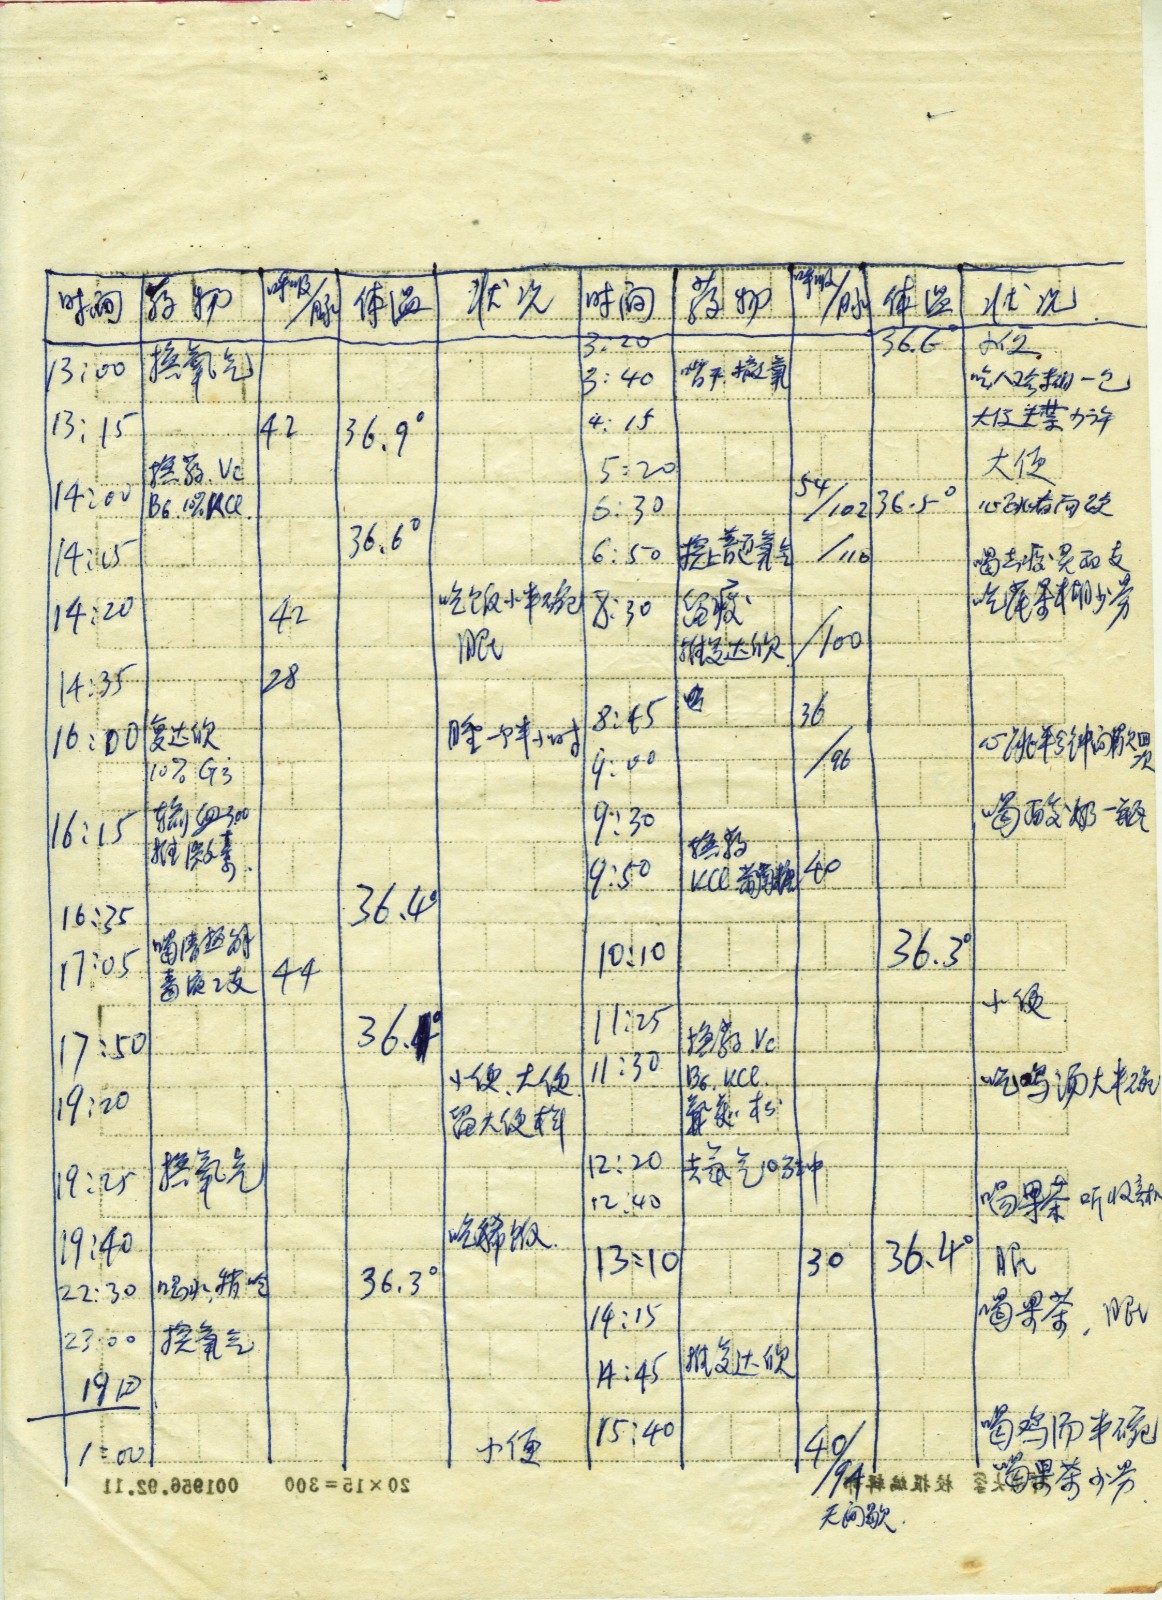 时间 药物 呼吸/脉 体温 状况
13:00 换氧气
13:15 42 36.9°
14:00 换药.Vc
B6.10%KCl.
14:15 36.6°
14:20 42 吃饭小半碗
眠
14:35 28
16:00 复达欣 睡一个半小时
10% G
16:15 输血300
推激素.
16:35 36.4°
17:05 喝清热解 44
毒液2支
17:50 36.4°
19:20 小便、大便
留大便样
19:25 换氧气
19:40 吃稀饭.
22:30 喝水, 36.3°
23:00 换氧气
19日
1:00 小便
时间 药物 呼吸/脉 体温 状况.
3:20 36.6° 小便
3:40 换氧 吃八一包
4:15 大便少许
5:20 大便
6:30 54/102 36.5° 心跳有间歇
6:50 换上普通氧气 /110 喝去痰灵两支
8:30 留痰 吃苹果糊少劳
推复达欣 /100
8:45 36
9:00 /96 心跳半分钟间歇四次
9:30 喝酸奶一瓶
9:50 换药 40
KCl 葡萄糖
10:10 36.3°
11:25 小便
11:30 换药.Vc 吃鸡汤大半碗
B6.KCl.
12:20 去氧气10分钟
12:40 喝果茶 听收音机
13:10 30 36.4° 眠
14:15 喝果茶,眠
14:45 推复达欣
15:40 40/94 喝鸡汤半碗
喝果茶少劳.
无间歇.
20×15=300 001956.92.11
校报编辑部